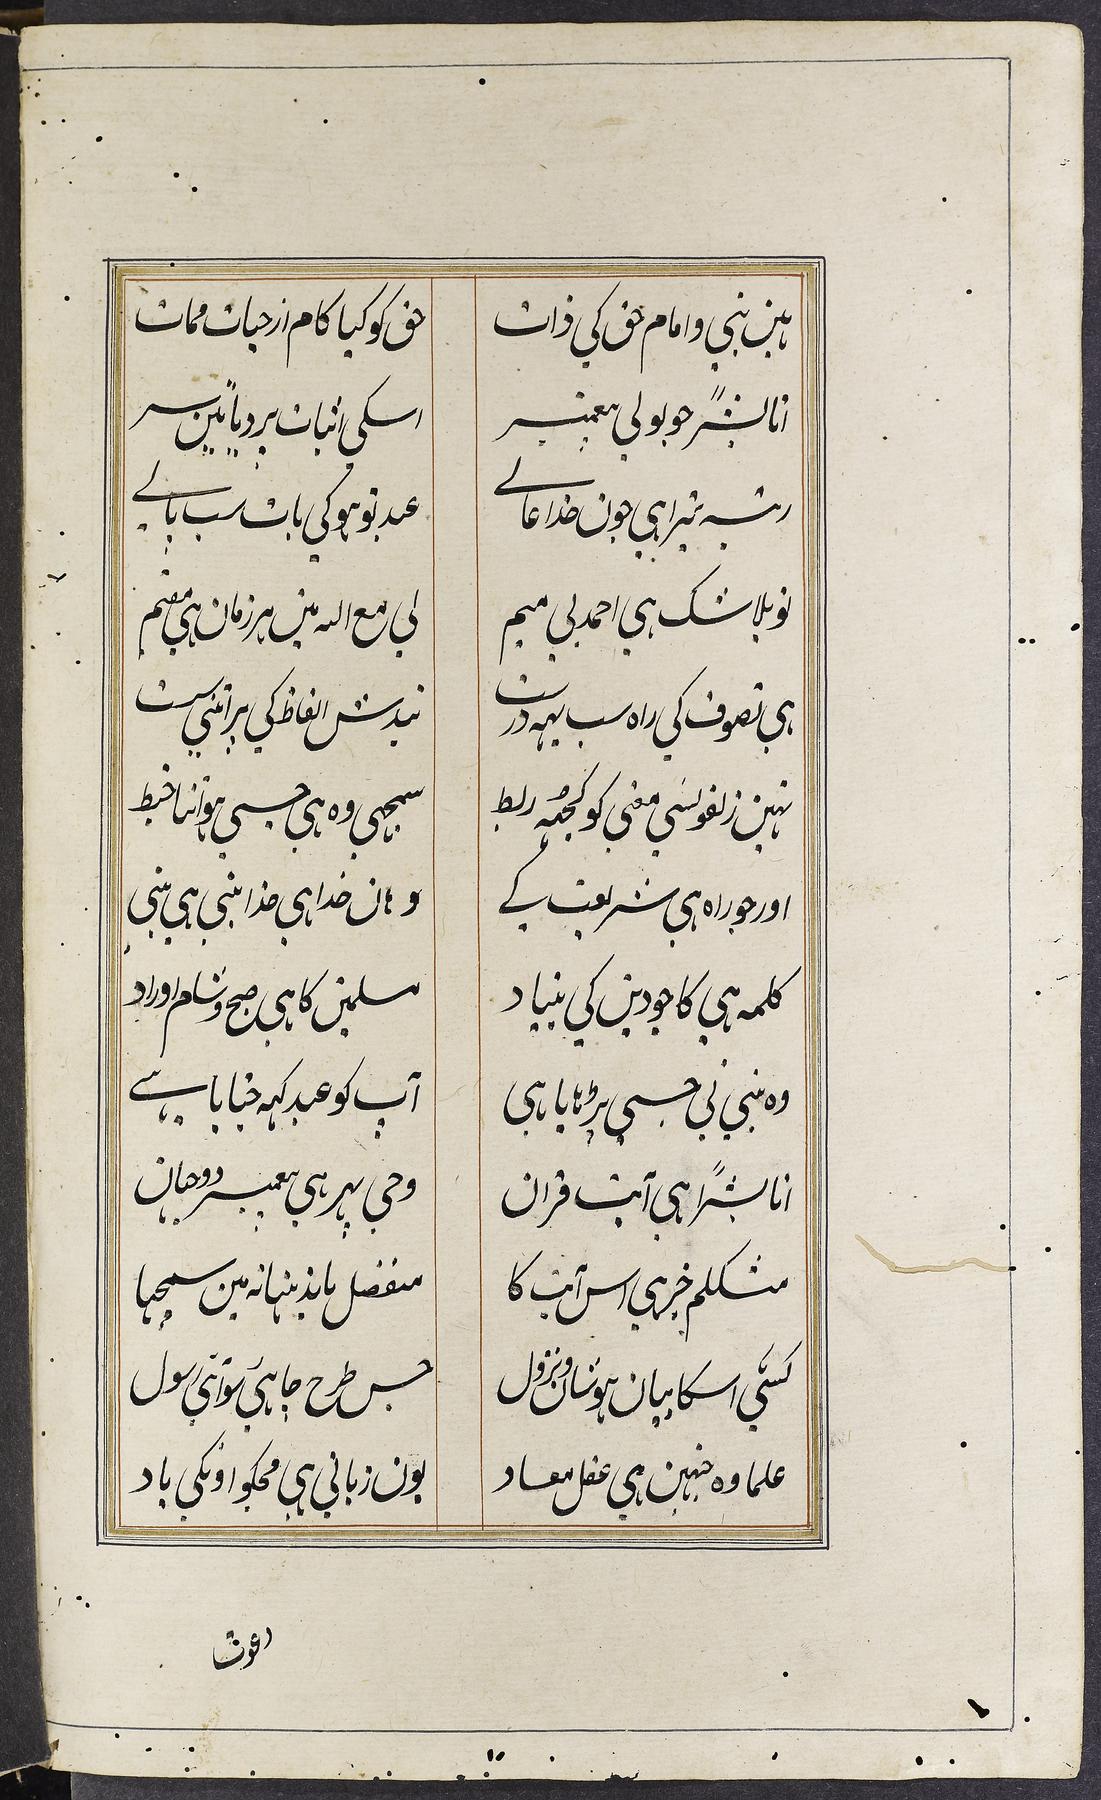 ہین نبی و امام حق کی ذات حق کو کیا کام از حیات ممات
انا بشرًا جو بولی پیغمبر اسکی اثبات پر دیا ہین سر
رتبہ تیرا ہی جون خدا عالے عبد تو ہو کی بات سب پالے
تو بلا شک ہی احمد بی میم لی مع اللہ مین ہر زمان ہی مقیم
ہی تصوف کی راہ سب یہہ درست بندش الفاظ کی پر اتنی سست
نہین زلفونسی معنی کو کچہہ ربط سمجہی وہ ہی جسی ہو اتنا خبط
اور جو راہ ہی شریعت کے وہان خدا ہی خدا نبی ہی نبی
کلمہ ہی کا جو دین کی بنیاد مسلمین کا ہی صبح و شام اوراد
وہ نبی نی جسی پڑہایا ہی آپ کو عبد کہہ جتایا ہے
انا بشرًا ہی آیت قران وحی پہر ہی پیغمبر دوجہان
مشکلم خبر ہی اس آیت کا منفصل باندہنانہ مین سمجہا
کسی اسکا بیان ہو شان و نزول جس طرح چاہی سو آئی رسول
علما وہ جنہین ہی عقل معاد یون زبانی ہی مجکو اونکی یاد